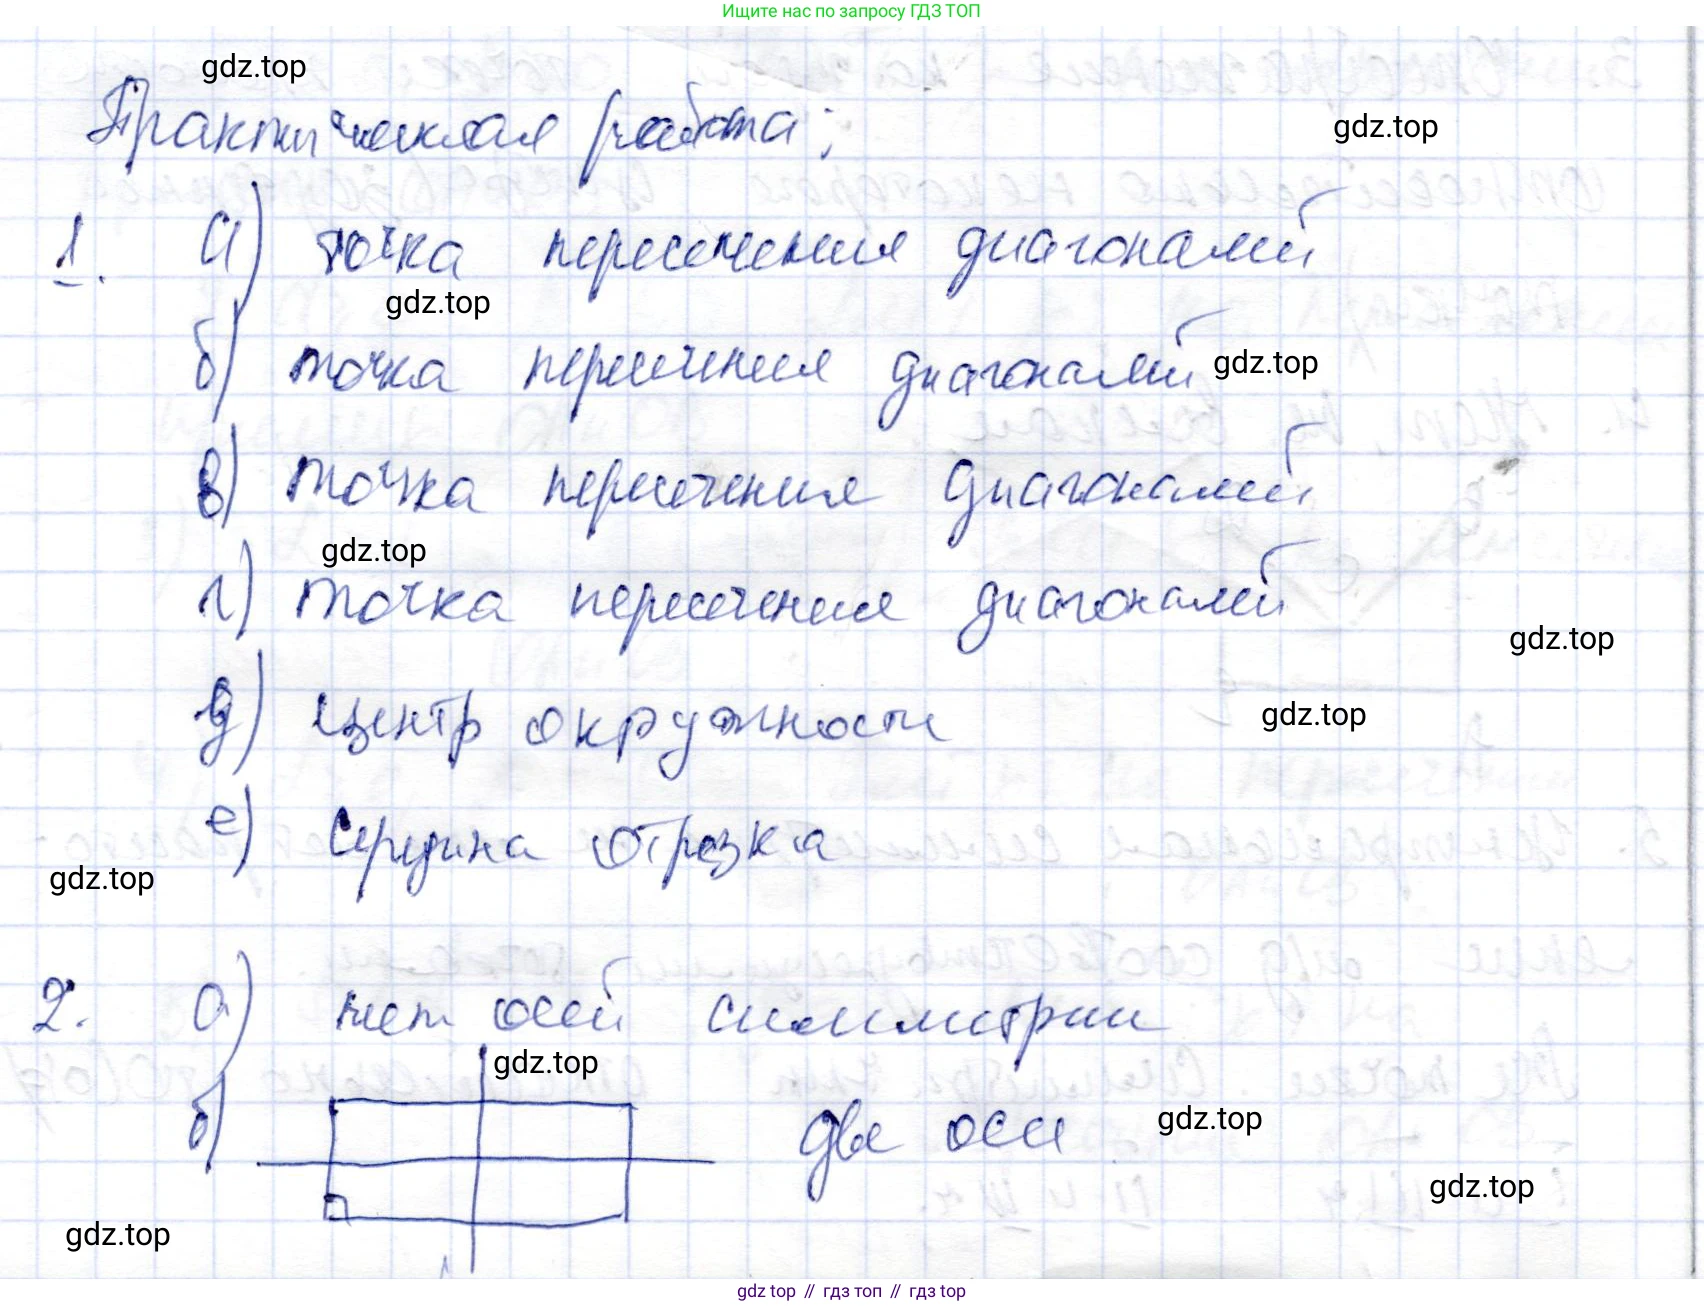 Ищите нас по запросу ГДЗ ТОП
gdz.top
Практическая работа;
gdz.top
1. а) точка пересечения диагоналей
gdz.top
б) точка пересечения диагоналей gdz.top
в) точка пересечения диагоналей
gdz.top
г) точка пересечения диагоналей
gdz.top
д) центр окружности
gdz.top
е) середина отрезка
gdz.top
2. а) нет осей симметрии
gdz.top
б) две оси gdz.top
gdz.top
gdz.top
gdz.top // гдз топ // гдз top